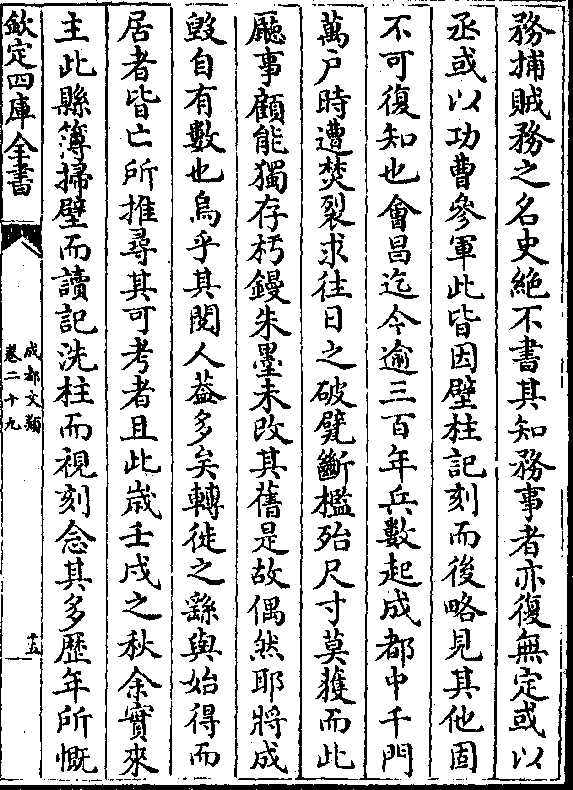 務捕賊務之名史絶不書其知務事者亦復無定或以
丞或以功曹參軍此皆因壁柱記刻而後略見其他固
不可復知也會昌迄今逾三百年兵數起成都中千門
萬户時遭焚裂求往日之破甓斷檻殆尺寸莫獲而此
廳事顧能獨存朽鏝朱墨未改其舊是故偶然耶將成
毁自有數也烏乎其閲人益多矣轉徙之繇與始得而
居者皆亡所推尋其可考者且此歲壬戌之秋余實來
主此縣簿掃壁而讀記洗柱而視刻念其多歷年所慨
欽定四庫全書
成都文類
卷二十九
十五